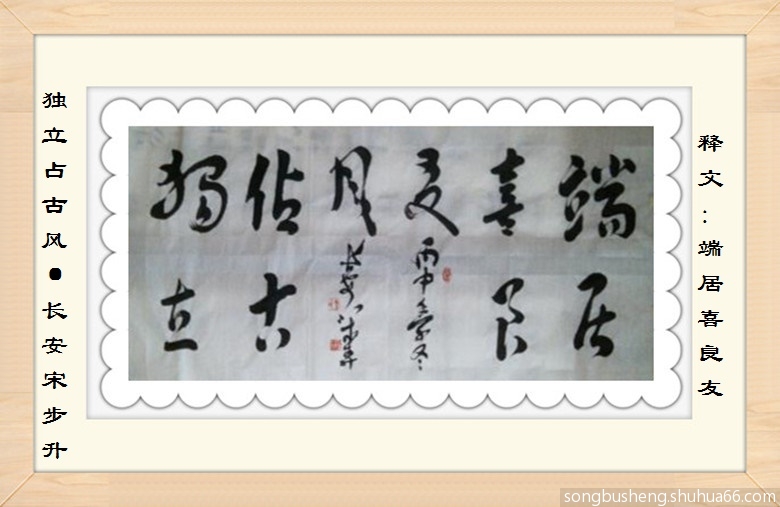 释文：端居喜良友
端居
喜良
友
丙申 冬
风
长安
佔古
獨立
独立占古风●长安宋步升
songbusheng.shuhua66.com